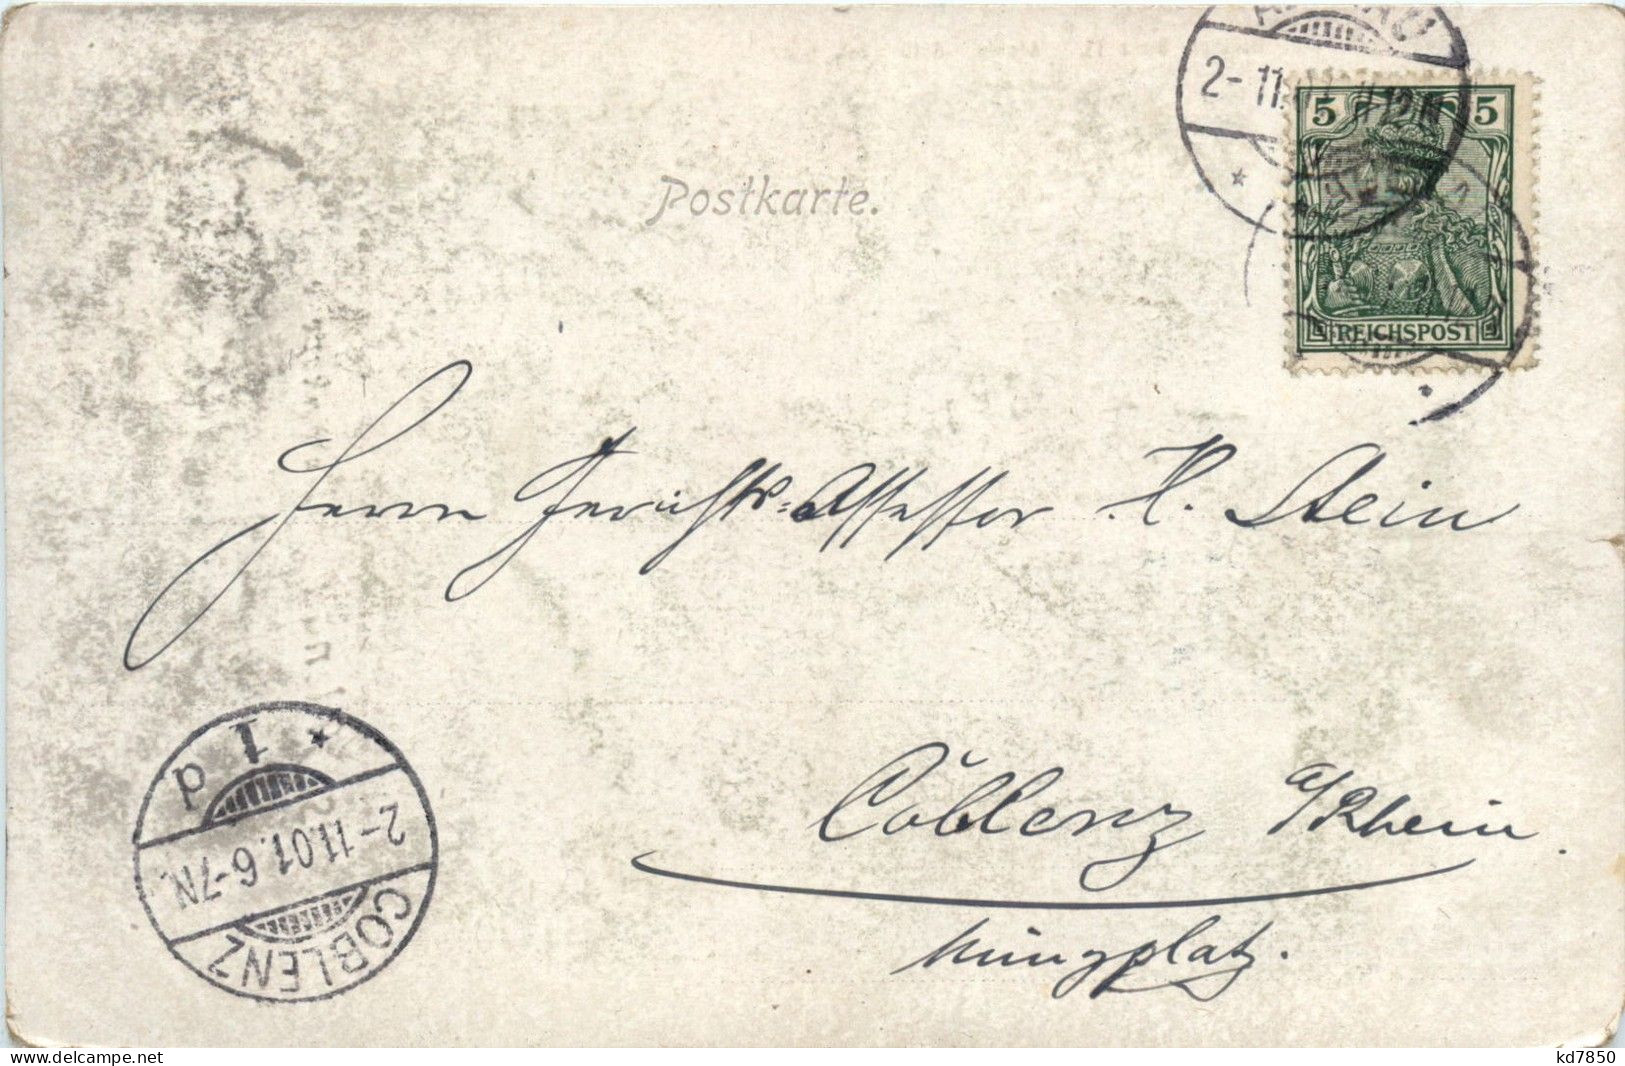 2-11. 11-12N
5 5
Postkarte.
REICHSPOST
Herrn Gerichts-Assessor H. Stein
1 d
2-11.01.6-7N.
COBLENZ
Coblenz a/Rhein.
Münzplatz.
www.hippostcard.com
kd7850